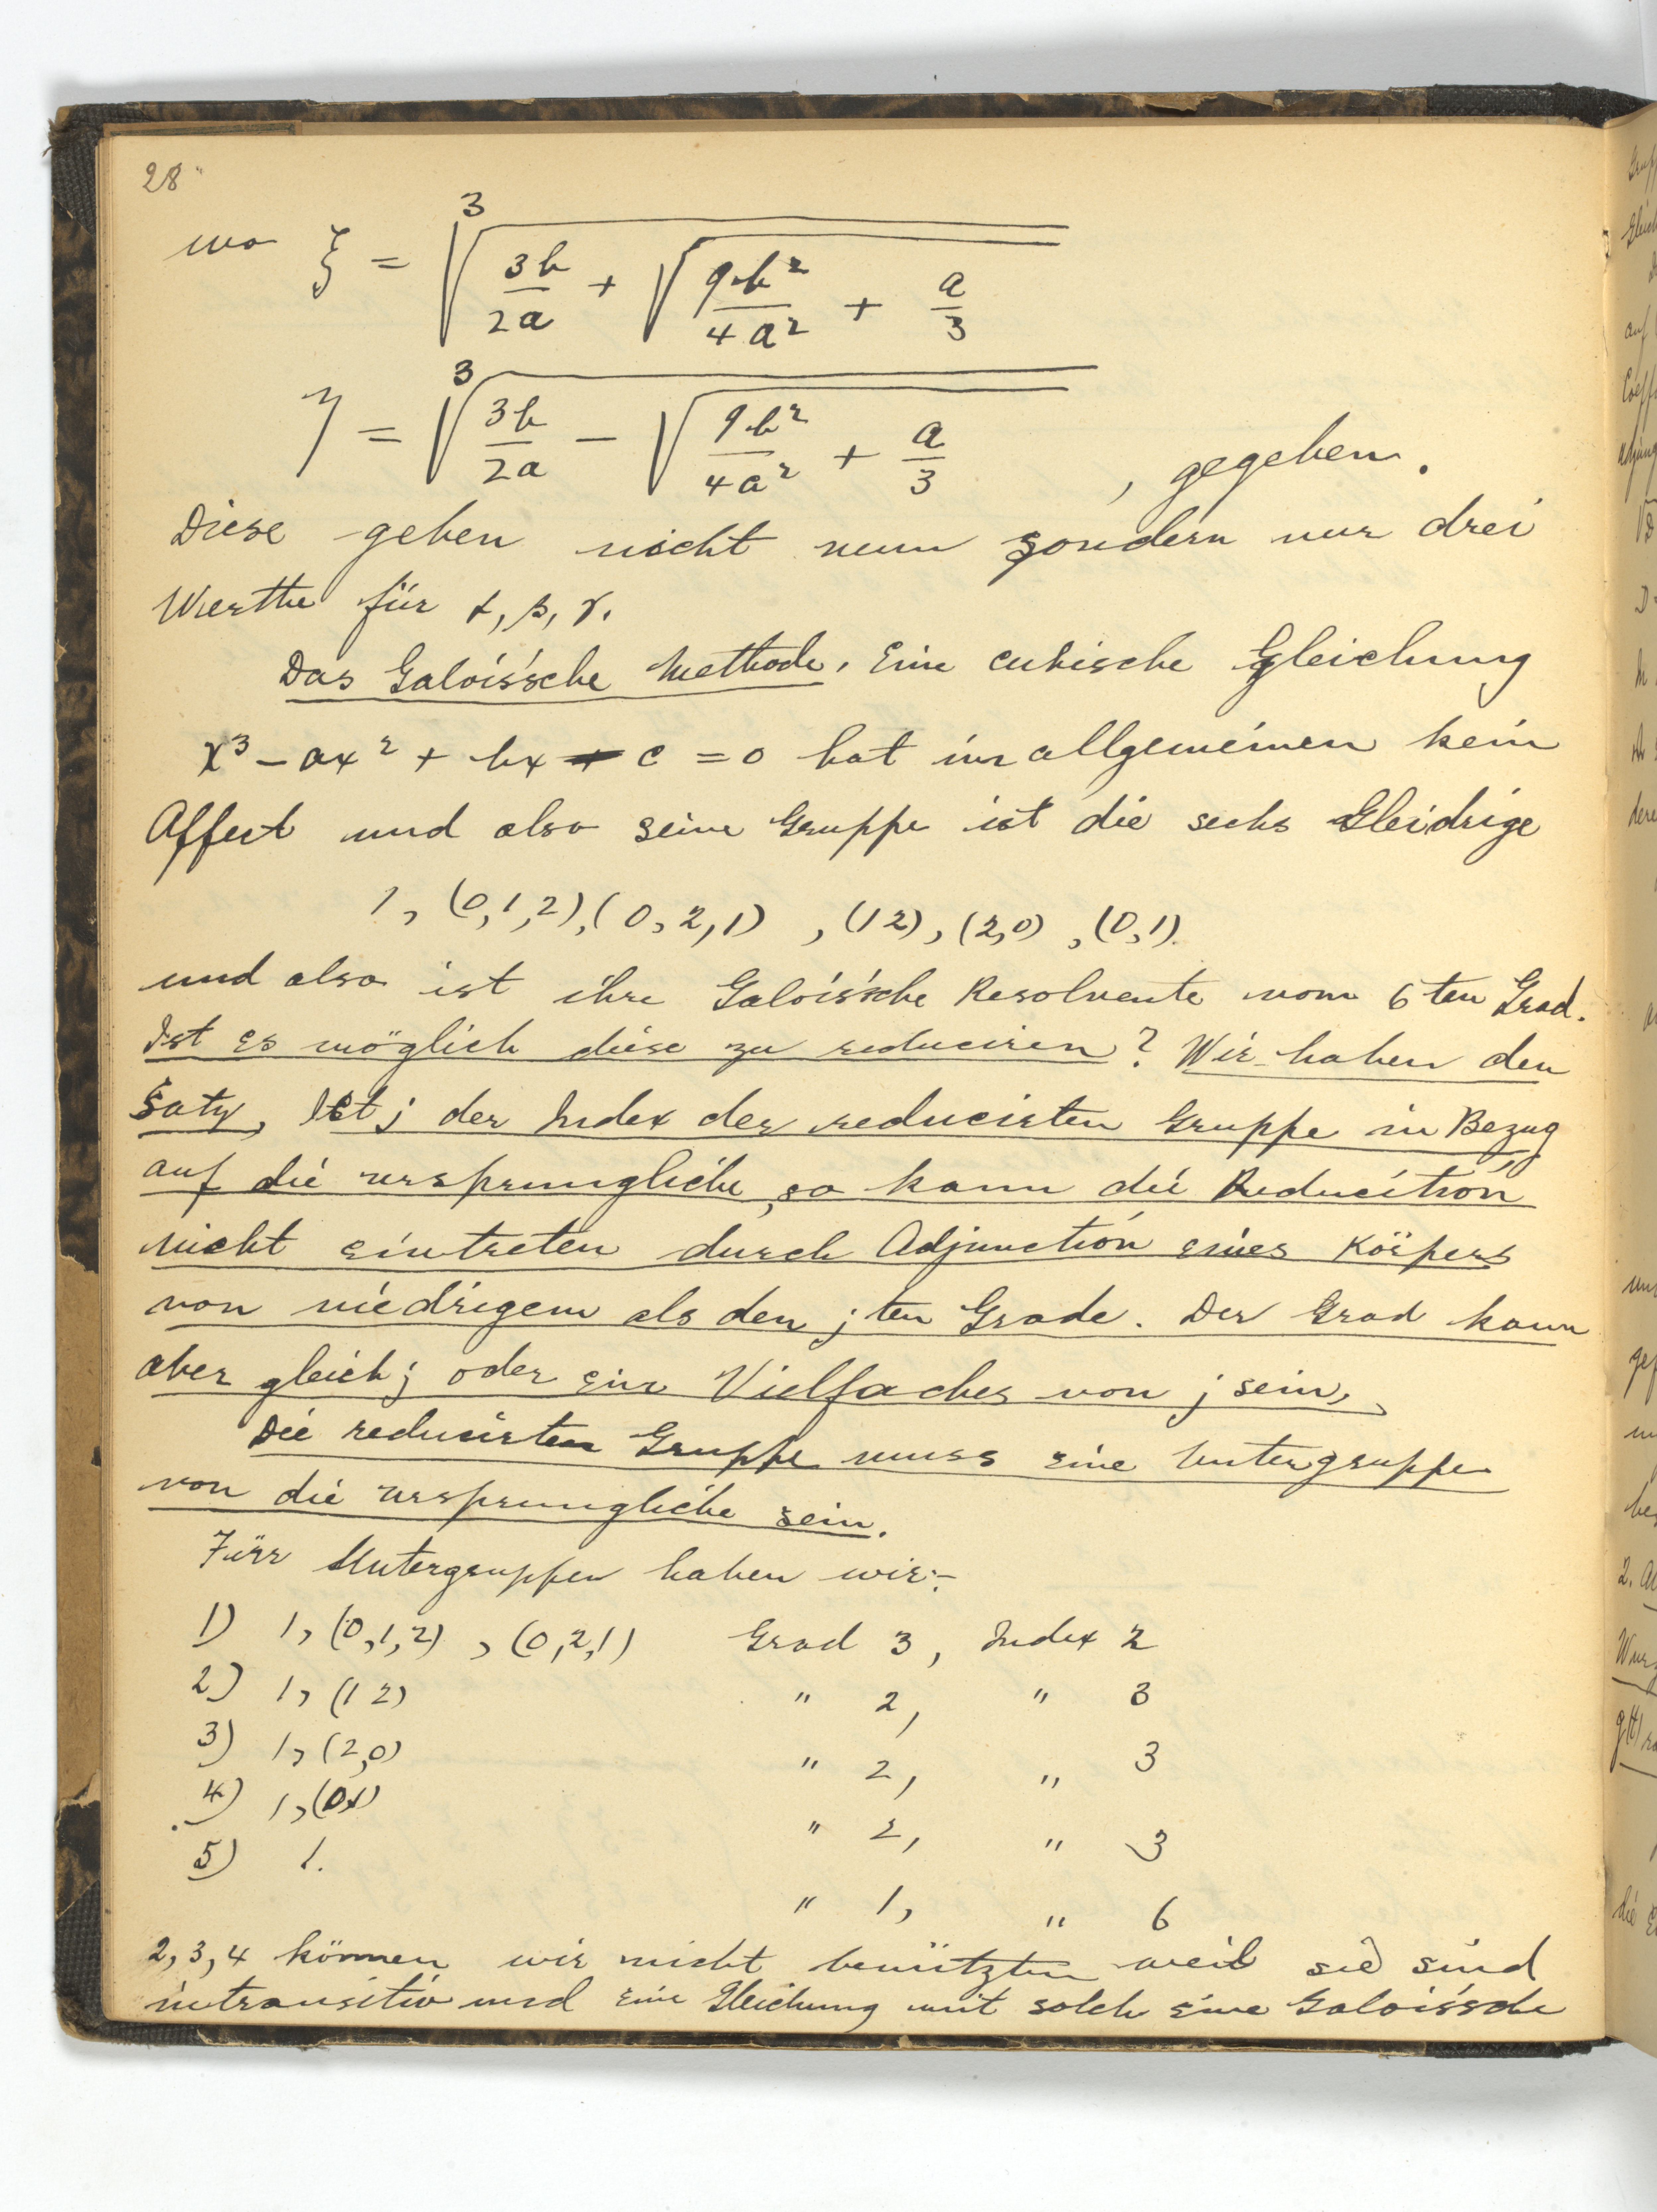 28
wo ξ = ∛(3b/2a + √(9b²/4a² + a/3))
η = ∛(3b/2a − √(9b²/4a² + a/3)) , gegeben.
Diese geben nicht neun sondern nur drei
Werthe für α, β, γ.
Das Galois'sche Methode. Eine cubische Gleichung
x³ − ax² + bx − c = 0 hat im allgemeinen kein
Affect und also seine Gruppe ist die sechs Gleidrige
1, (0,1,2), (0,2,1), (12), (2,0), (0,1).
und also ist ihre Galois'sche Resolvente vom 6ten Grad.
Ist es möglich diese zu reduciren? Wir haben den
Satz, Ist j der Index der reducirten Gruppe in Bezug
auf die ursprungliche, so kann die Reducition
nicht eintreten durch Adjunction eines Körpers
von niedrigem als den j ten Grade. Der Grad kann
aber gleich j oder ein Vielfaches von j sein,
Die reducirten Gruppe muss eine Untergruppe
von die ursprungliche sein.
Fürr Untergruppen haben wir:-
1) 1, (0,1,2), (0,2,1) Grad 3, Index 2
2) 1, (12) " 2, " 3
3) 1, (2,0) " 2, " 3
4) 1, (01) " 2, " 3
5) 1. " 1, " 6
2, 3, 4 können wir nicht benützten weil sie sind
intransitiv und eine Gleichung mit solch eine Galois'sche